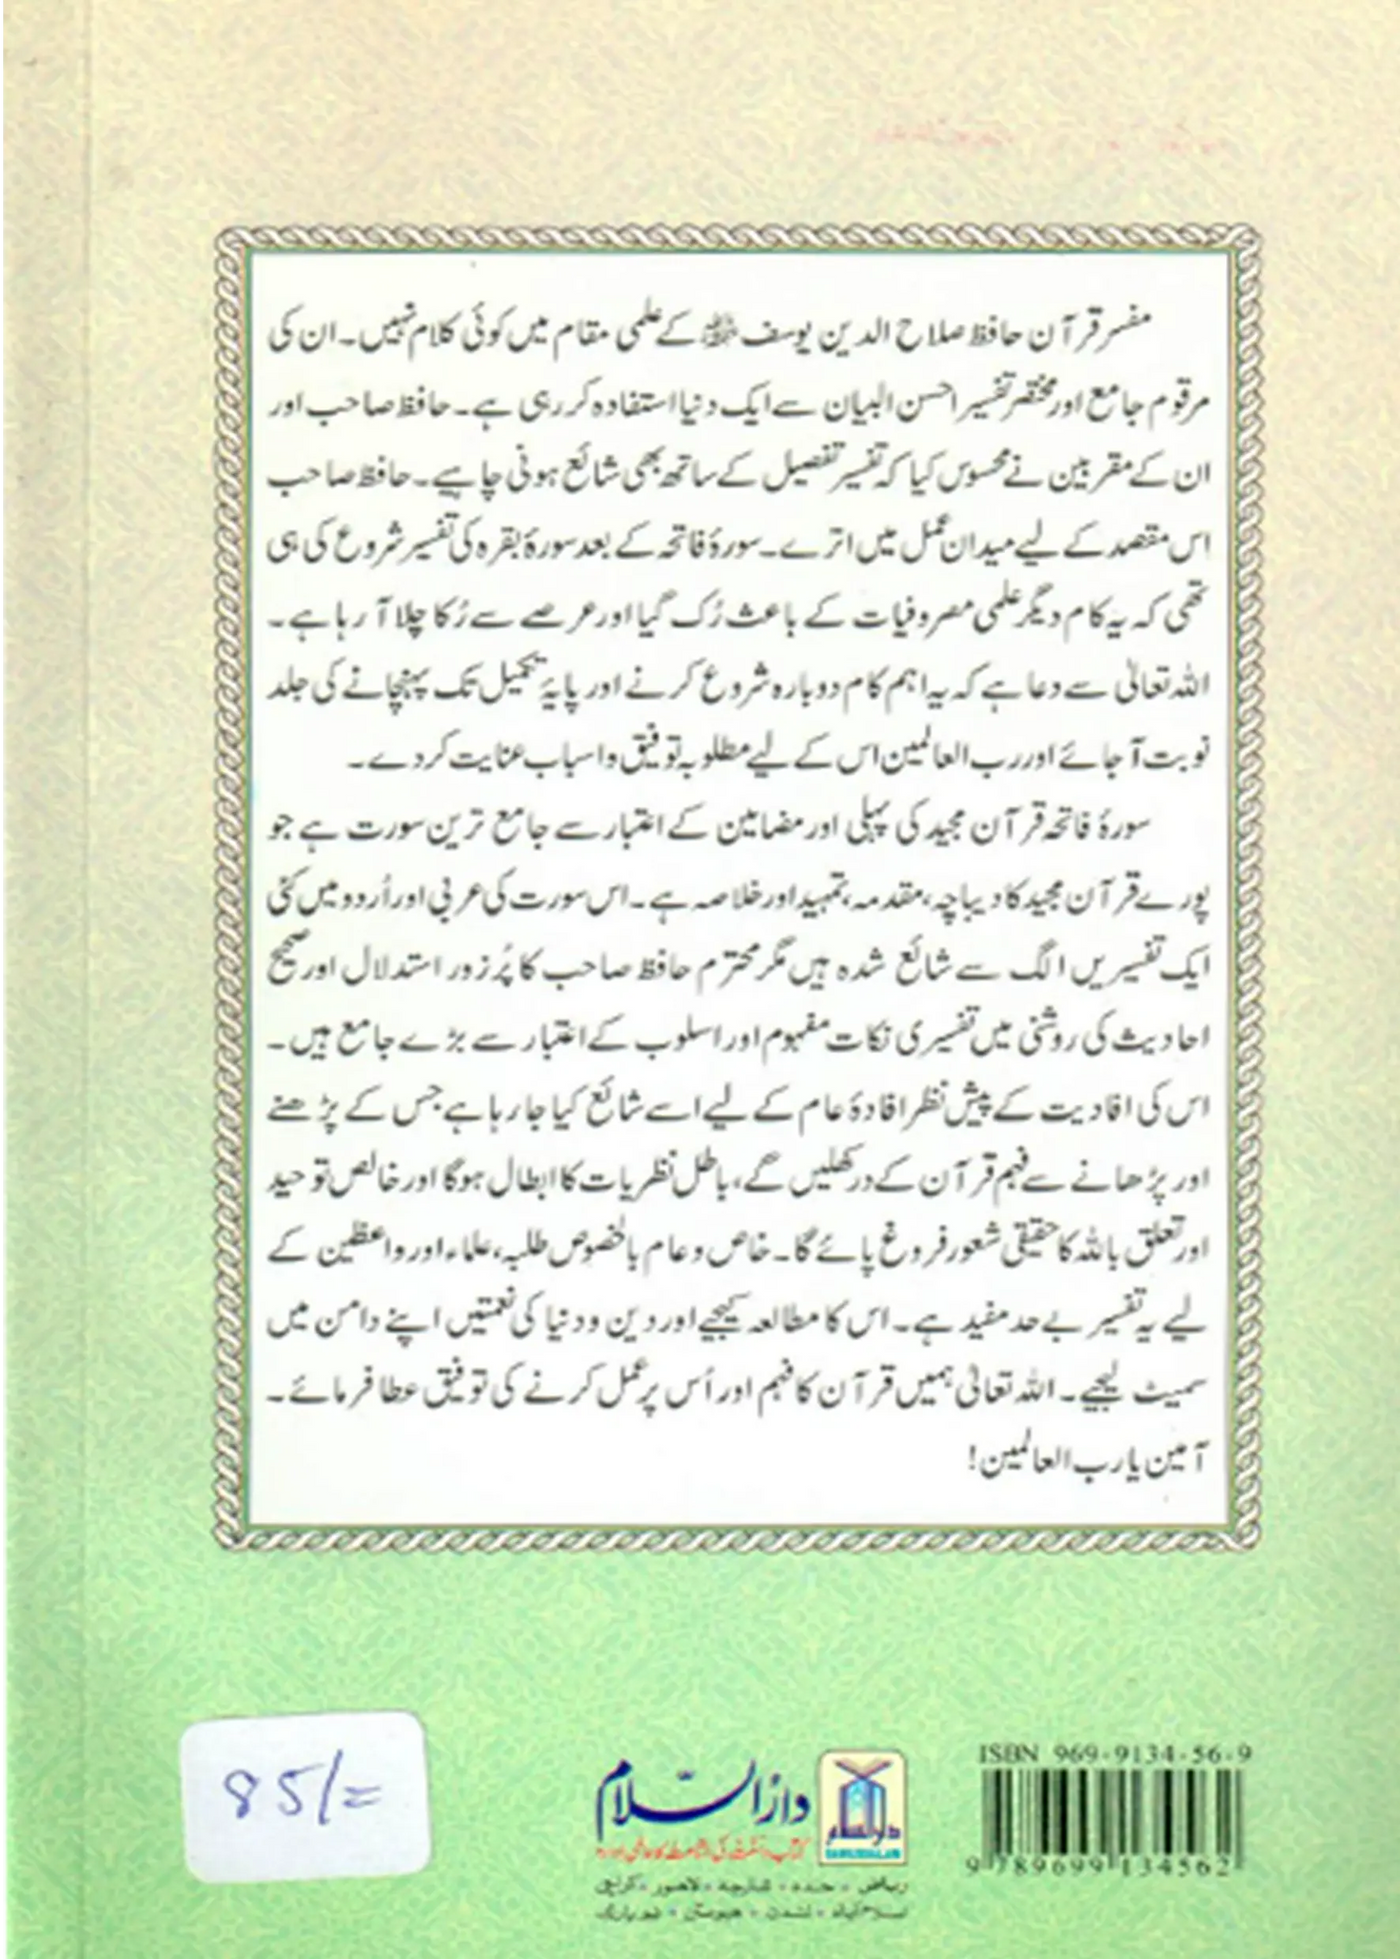 مفسر قرآن حافظ صلاح الدین یوسف ﷾ کے علمی مقام میں کوئی کلام نہیں۔ ان کی
مرقوم جامع اور مختصر تفسیر احسن البیان سے ایک دنیا استفادہ کر رہی ہے۔ حافظ صاحب اور
ان کے مقربین نے محسوس کیا کہ تفسیر تفصیل کے ساتھ بھی شائع ہونی چاہیے۔ حافظ صاحب
اس مقصد کے لیے میدان عمل میں اترے۔ سورۂ فاتحہ کے بعد سورۂ بقرہ کی تفسیر شروع کی ہی
تھی کہ یہ کام دیگر علمی مصروفیات کے باعث رُک گیا اور عرصے سے رُکا چلا آ رہا ہے۔
اللہ تعالیٰ سے دعا ہے کہ یہ اہم کام دوبارہ شروع کرنے اور پایۂ تکمیل تک پہنچانے کی جلد
نوبت آ جائے اور رب العالمین اس کے لیے مطلوبہ توفیق و اسباب عنایت کر دے۔
سورۂ فاتحہ قرآن مجید کی پہلی اور مضامین کے اعتبار سے جامع ترین سورت ہے جو
پورے قرآن مجید کا دیباچہ، مقدمہ، تمہید اور خلاصہ ہے۔ اس سورت کی عربی اور اُردو میں کئی
ایک تفسیریں الگ سے شائع شدہ ہیں مگر محترم حافظ صاحب کا پُر زور استدلال اور صحیح
احادیث کی روشنی میں تفسیری نکات مفہوم اور اسلوب کے اعتبار سے بڑے جامع ہیں۔
اس کی افادیت کے پیش نظر افادۂ عام کے لیے اسے شائع کیا جا رہا ہے جس کے پڑھنے
اور پڑھانے سے فہم قرآن کے در کھلیں گے، باطل نظریات کا ابطال ہوگا اور خالص توحید
اور تعلق باللہ کا حقیقی شعور فروغ پائے گا۔ خاص و عام بالخصوص طلبہ، علماء اور واعظین کے
لیے یہ تفسیر بے حد مفید ہے۔ اس کا مطالعہ کیجیے اور دین و دنیا کی نعمتیں اپنے دامن میں
سمیٹ لیجیے۔ اللہ تعالیٰ ہمیں قرآن کا فہم اور اُس پر عمل کرنے کی توفیق عطا فرمائے۔
آمین یا رب العالمین!
ISBN 969-9134-56-9
9 789699 134562
دارالسلام
دارالسلام
DARUSSALAM
کتاب و سنت کی اشاعت کا عالمی ادارہ
ریاض • جدہ • شارجہ • لاہور • کراچی
اسلام آباد • لندن • ہیوسٹن • نیو یارک
85/=